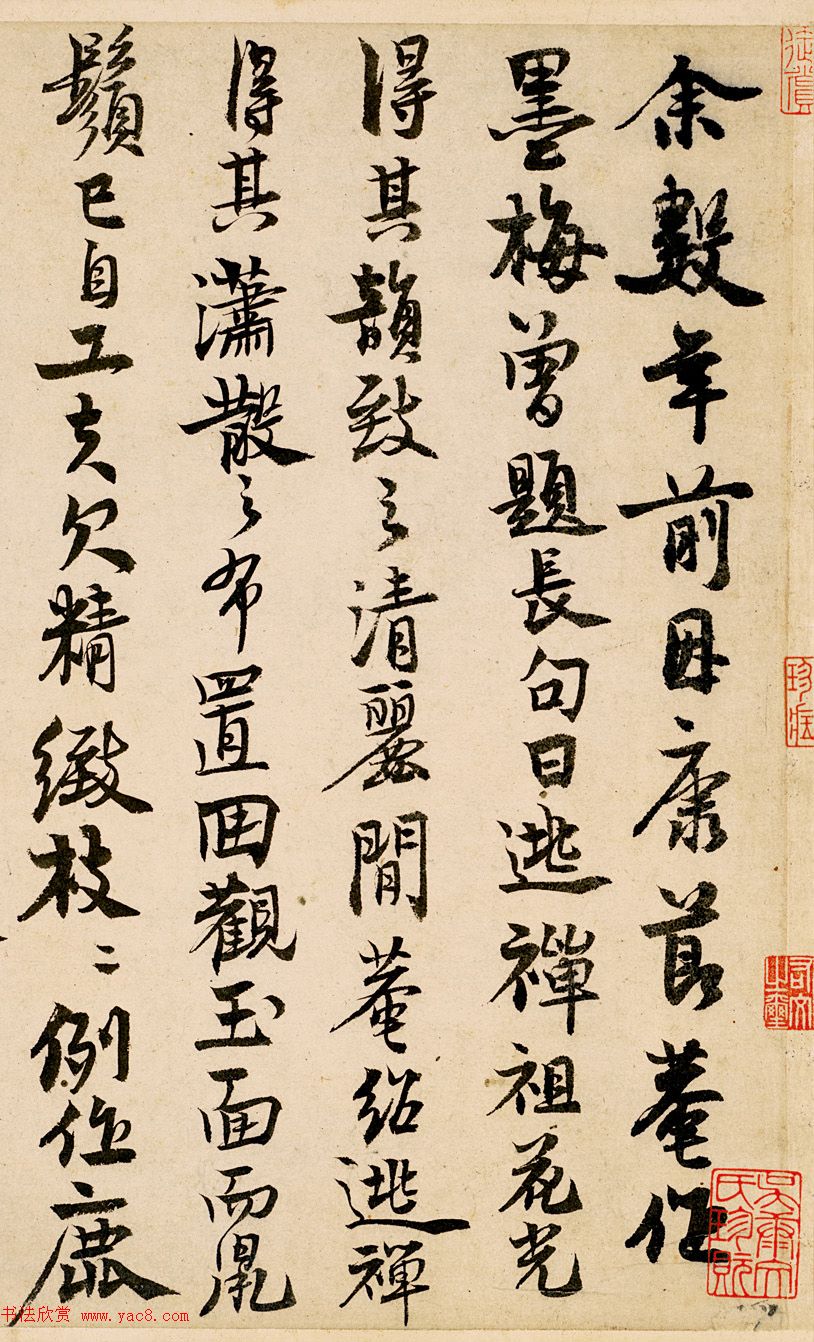 余數年前因康節菴作
墨梅曾題長句曰逃禪祖花光
得其韻致之清麗閒菴紹逃禪
得其瀟散之布置回觀玉面而鼠
鬚已自工夫欠精緻枝〻例作鹿
珍藏
书法欣赏 www.yac8.com